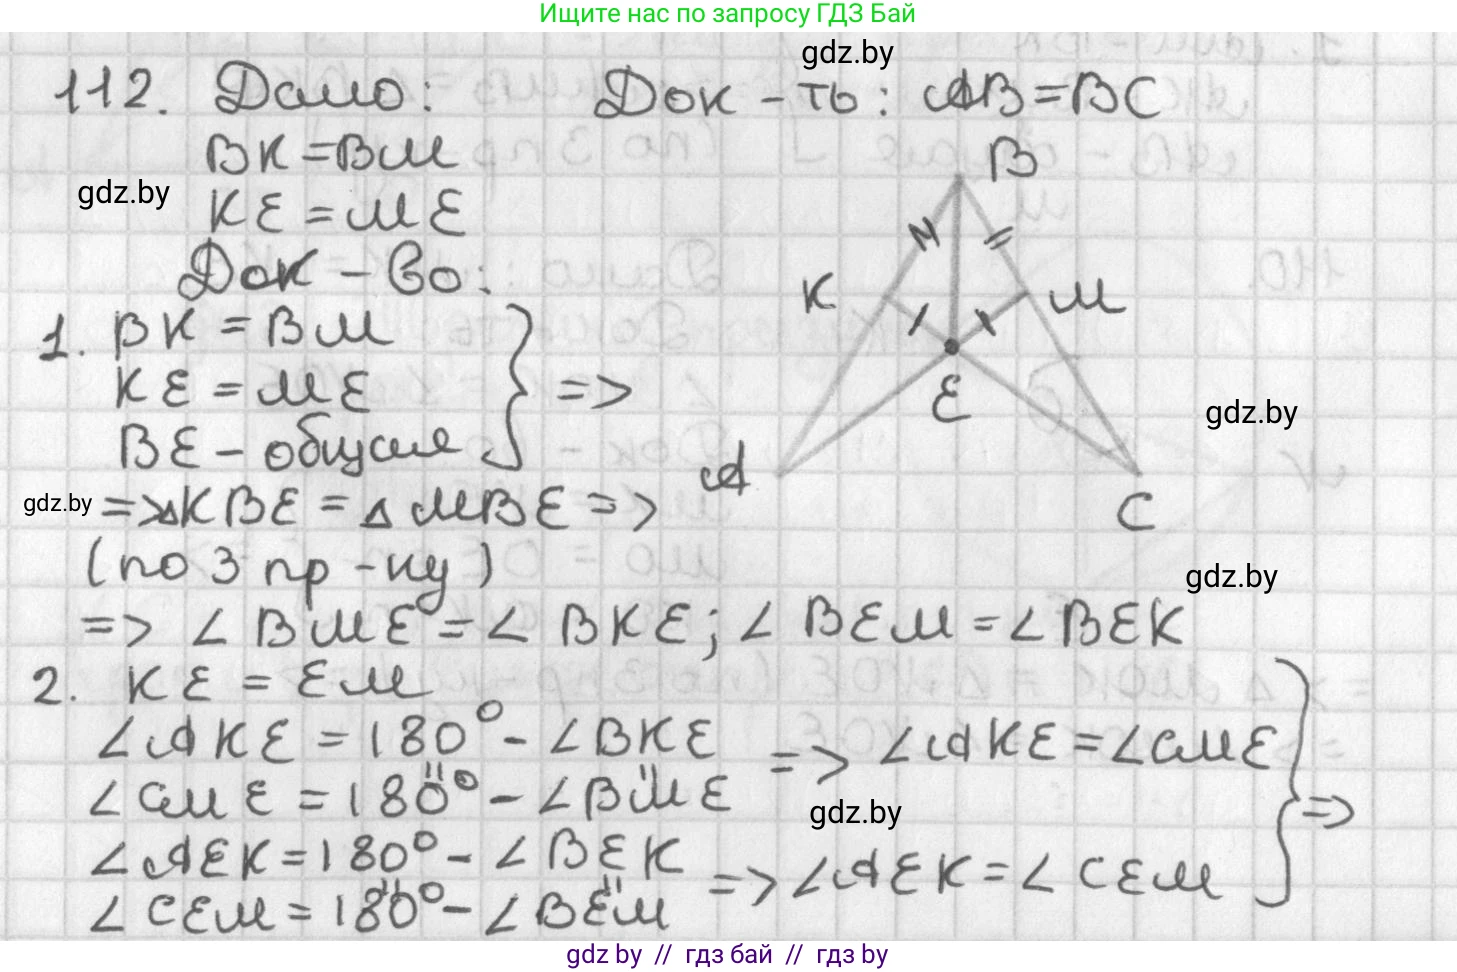 Ищите нас по запросу ГДЗ Бай
gdz.by
112. Дано: Док-ть: AB=BC
BK=BM
gdz.by
KE=ME
Док-во:
B
K
M
E
A
C
1. BK=BM
KE=ME
BE-общая } =>
gdz.by
gdz.by
=>△KBE=△MBE=>
(по 3 пр-ку)
gdz.by
=> ∠BME=∠BKE; ∠BEM=∠BEK
2. KE=EM
∠AKE=180°-∠BKE
∠CME=180°-∠BME => ∠AKE=∠CME
gdz.by
∠AEK=180°-∠BEK
∠CEM=180°-∠BEM => ∠AEK=∠CEM } =>
gdz by // гдз бай // гдз by